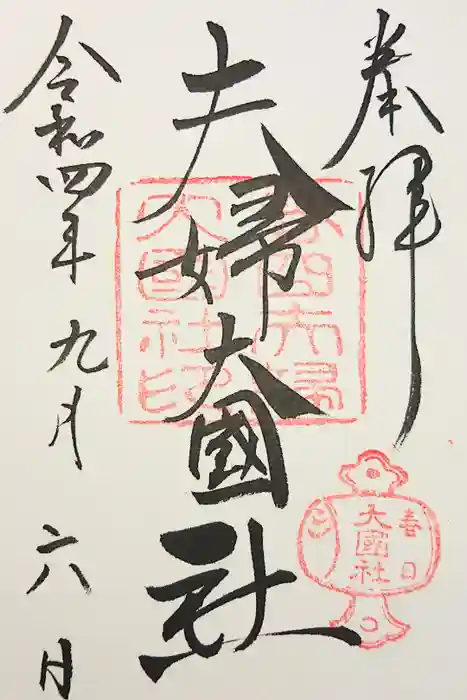 奉拝
夫婦大國社
令和四年九月六日
春日
大國社